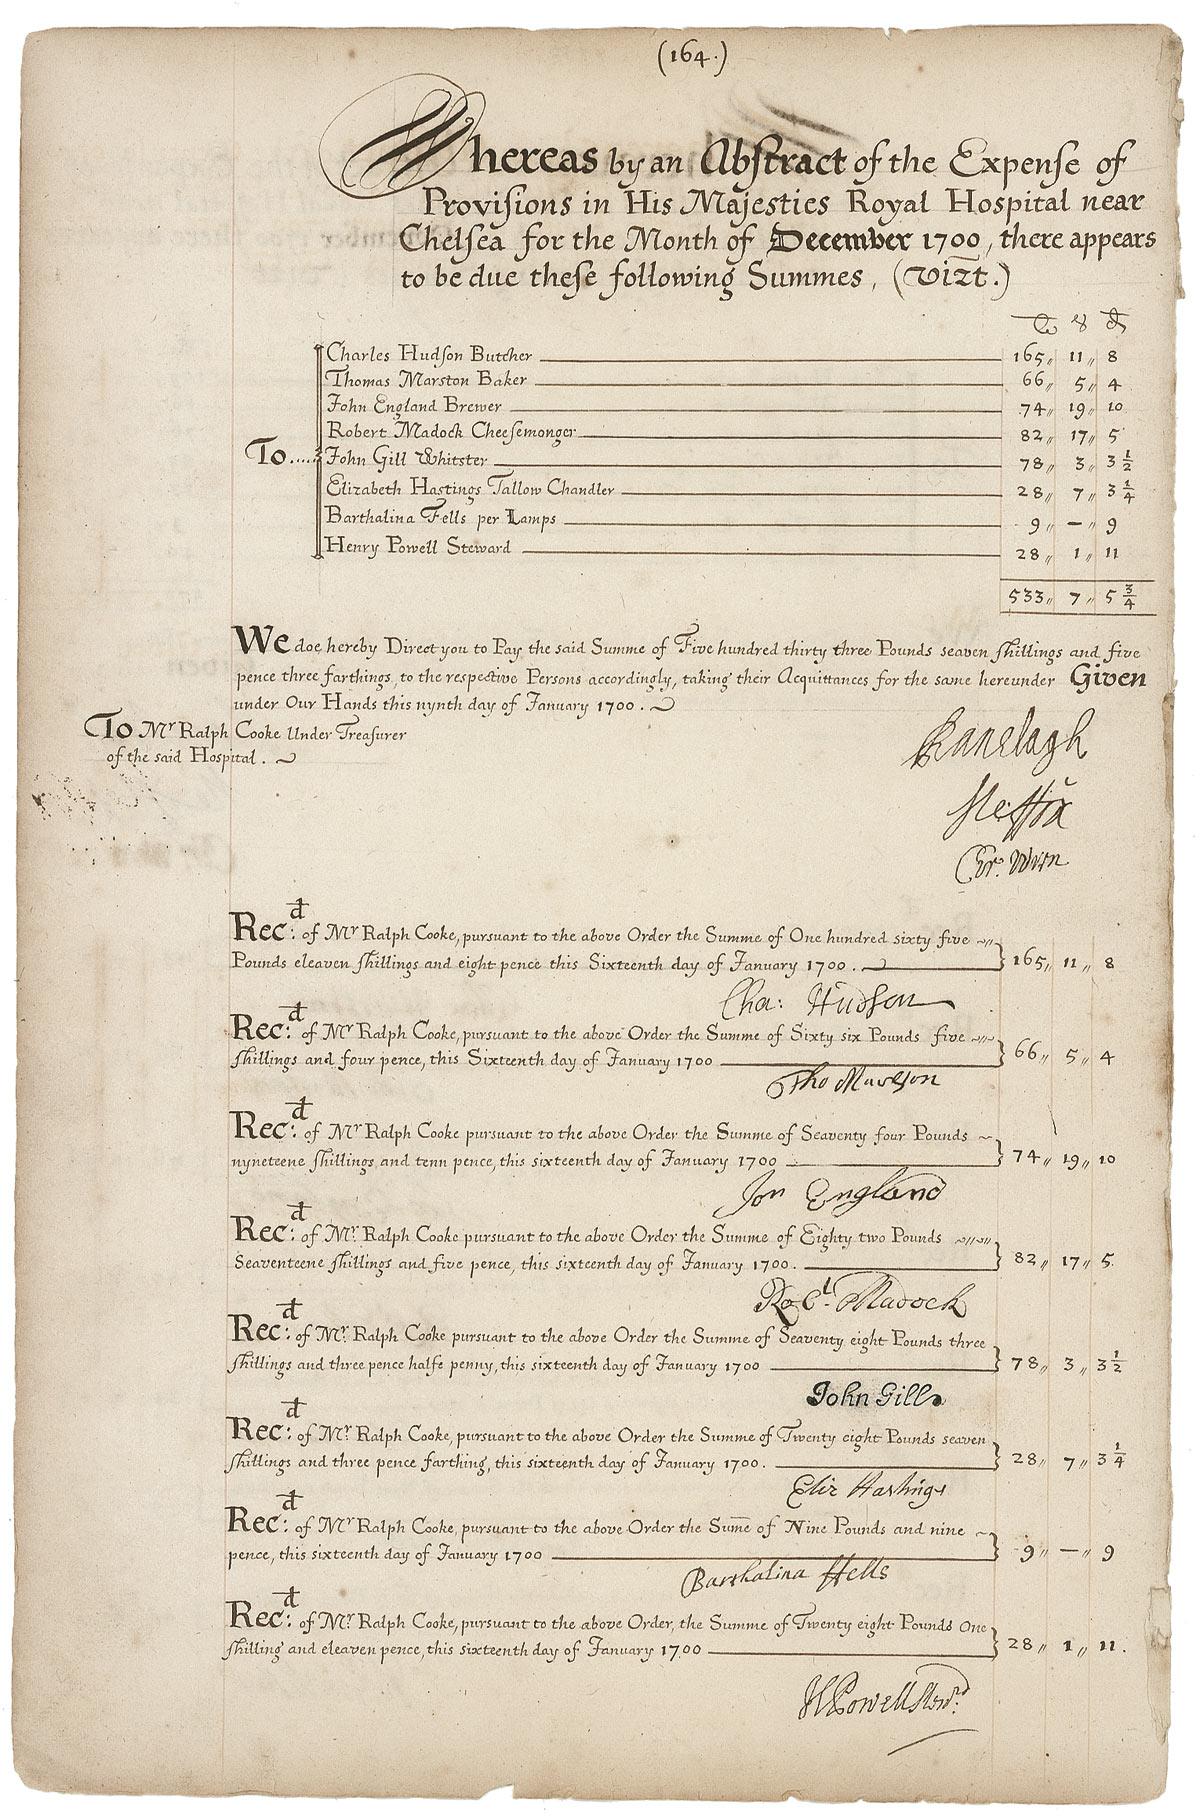 (164.)
Whereas by an Abstract of the Expense of
Provisions in His Majesties Royal Hospital near
Chelsea for the Month of December 1700, there appears
to be due these following Summes, (Vizt.)
£ s d
Charles Hudson Butcher 165,, 11,, 8
Thomas Marston Baker 66,, 5,, 4
John England Brewer 74,, 19,, 10
Robert Madock Cheesemonger 82,, 17,, 5
To.... John Gill Whitster 78,, 3,, 3 1/2
Elizabeth Hastings Tallow Chandler 28,, 7,, 3 1/4
Barthalina Fells per Lamps 9,, —,, 9
Henry Powell Steward 28,, 1,, 11
533,, 7,, 5 3/4
We doe hereby Direct you to Pay the said Summe of Five hundred thirty three Pounds seaven shillings and five
pence three farthings, to the respective Persons accordingly, taking their Acquittances for the same hereunder Given
under Our Hands this nynth day of January 1700.
To Mr Ralph Cooke Under Treasurer
of the said Hospital.
Ranelagh
Chr. Wren
Recd: of Mr Ralph Cooke, pursuant to the above Order the Summe of One hundred sixty five
Pounds eleaven shillings and eight pence this Sixteenth day of January 1700. 165,, 11,, 8
Cha: Hudson
Recd: of Mr Ralph Cooke, pursuant to the above Order the Summe of Sixty six Pounds five
shillings and four pence, this Sixteenth day of January 1700 66,, 5,, 4
Tho Marston
Recd: of Mr Ralph Cooke pursuant to the above Order the Summe of Seaventy four Pounds
nyneteene shillings and tenn pence, this sixteenth day of January 1700 74,, 19,, 10
Jon England
Recd: of Mr. Ralph Cooke pursuant to the above Order the Summe of Eighty two Pounds
Seaventeene shillings and five pence, this sixteenth day of January 1700. 82,, 17,, 5.
Robt. Madock
Recd: of Mr. Ralph Cooke pursuant to the above Order the Summe of Seaventy eight Pounds three
shillings and three pence halfe penny, this sixteenth day of January 1700 78,, 3,, 3 1/2
John Gill
Recd: of Mr. Ralph Cooke, pursuant to the above Order the Summe of Twenty eight Pounds seaven
shillings and three pence farthing, this sixteenth day of January 1700. 28,, 7,, 3 1/4
Eliz Hastings
Recd: of Mr Ralph Cooke, pursuant to the above Order the Sum̄e of Nine Pounds and nine
pence, this sixteenth day of January 1700 9,, —,, 9
Barthalina ffells
Recd: of Mr. Ralph Cooke, pursuant to the above Order, the Summe of Twenty eight Pounds One
shilling and eleaven pence, this sixteenth day of January 1700 28,, 1,, 11.
H Powell Stewd: